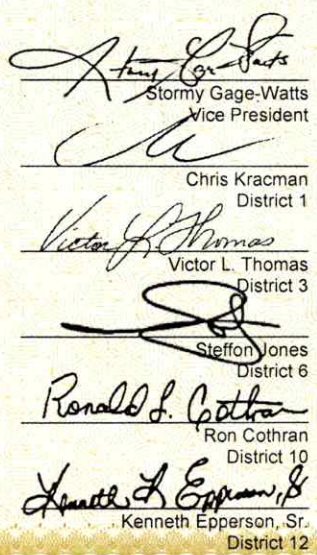 Stormy Gage-Watts
Vice President
Chris Kracman
District 1
Victor L. Thomas
Victor L. Thomas
District 3
Steffon Jones
District 6
Ronald L. Cothran
Ron Cothran
District 10
Kenneth L Epperson, Sr
Kenneth Epperson, Sr.
District 12